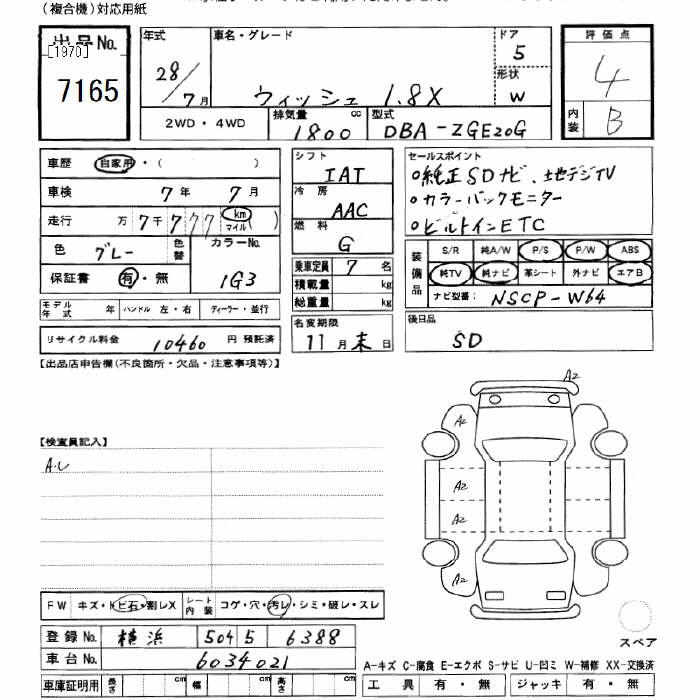 (複合機)対応用紙
出品No. [1970] 7165
年式 28/7月
車名・グレード ウィッシュ 1.8X
ドア 5
形状 W
評価点 4
内装 B
2WD・4WD
排気量 1800 cc
型式 DBA-ZGE20G
車歴 自家用・( )
車検 7年 7月
走行 万7千777 km マイル( )
色 グレー 色替
カラーNo. 1G3
保証書 有・無
モデル年式 年 ハンドル 左・右 ディーラー・並行
リサイクル料金 10460 円 預託済
シフト IAT
冷房 AAC
燃料 G
乗車定員 7 名
積載量 kg
総重量 kg
名変期限 11月末日
セールスポイント
○純正SDナビ、地デジTV
○カラーバックモニター
○ビルトインETC
装備品 S/R 純A/W P/S P/W ABS
純TV 純ナビ 革シート 外ナビ エアB
ナビ型番: NSCP-W64
後日品 SD
【出品店申告欄(不良箇所・欠品・注意事項等)】
【検査員記入】
A2
A2
A2
A2
A2
FW キズ・トビ石・割レX
シート内装 コゲ・穴・汚レ・シミ・破レ・スレ
登録No. 横浜 504 5 6388
車台No. 6034021
スペア
A-キズ C-腐食 E-エクボ S-サビ U-凹ミ W-補修 XX-交換済
車庫証明用 長さ cm 幅 cm 高さ cm
工具 有・無 ジャッキ 有・無